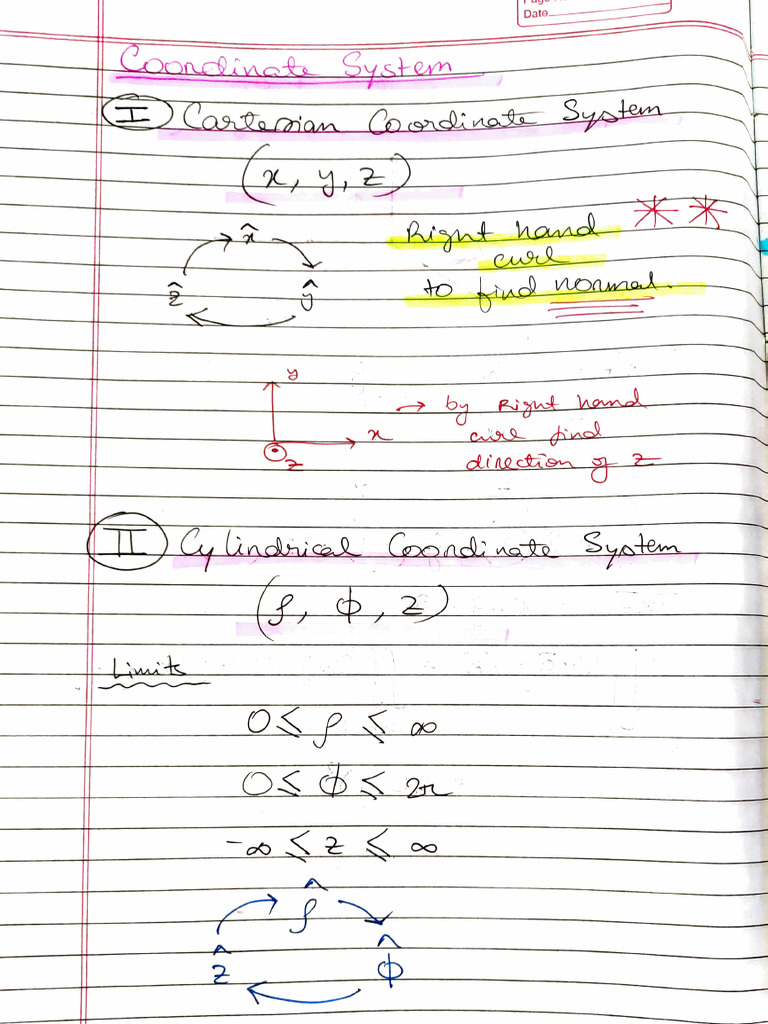 Date
Coordinate System
I Cartesian Coordinate System
(x, y, z)
Right hand
curl
to find normal.
x̂
ẑ ŷ
y
x
z
→ by Right hand
curl find
direction of z
II Cylindrical Coordinate System
(ρ, ϕ, z)
Limits
0 ≤ ρ ≤ ∞
0 ≤ ϕ ≤ 2π
-∞ ≤ z ≤ ∞
ρ̂
ẑ ϕ̂